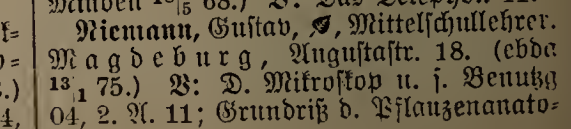 68.)
Niemann, Gustav, Mittelschullehrer.
Magdeburg, Auguststr. 18. (ebda
13/1 75.) V: D. Mikroskop u. s. Benutzg
04, 2. A. 11; Grundriß d. Pflanzenanato=